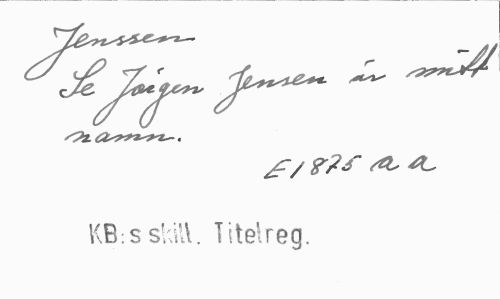 Jenssen
Se Jörgen Jensen är mitt
namn.
E1875 a a
KB:s skill. Titelreg.